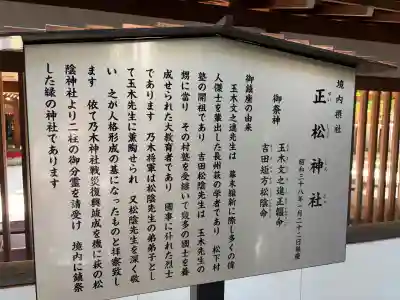 境内摂社
正松神社
せいしょうじんじゃ
昭和三十八年一月二十二日鎮座
御祭神
玉木文之進正韞命
吉田矩方松陰命
御鎮座の由来
玉木文之進先生は 幕末維新に際し多くの偉
人傑士を輩出した長州萩の学者であり 松下村
塾の開祖であり 吉田松陰先生は 玉木先生の
甥に当り その村塾を受継いで幾多の国士を養
成せられた大教育者であり 國事に仆れた烈士
であります 乃木将軍は松陰先生の弟弟子とし
て玉木先生に薫陶せられ 又松陰先生を深く敬
い 之が人格形成の基になったものと拝察致し
ます 依て乃木神社戦災復興竣成を機に萩の松
陰神社より二柱の御分霊を請受け 境内に鎮祭
した縁の神社であります